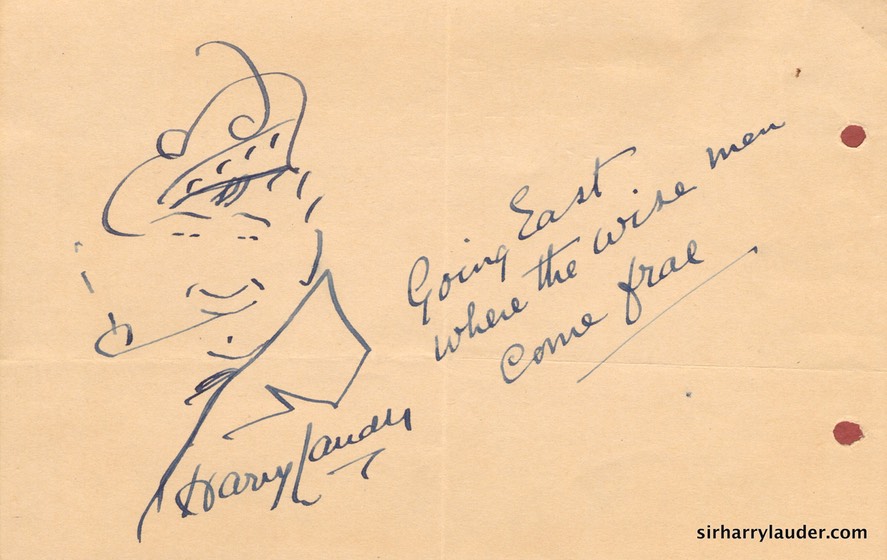 Going East
where the wise men
come frae
Harry Lauder
sirharrylauder.com